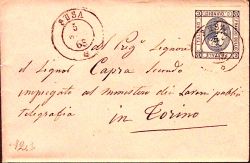 SUSA
5
63
Al Preg.mo Signore
il Signor Capra Secondo
impiegato al ministero dei Lavori pubblici
telegrafia
in Torino